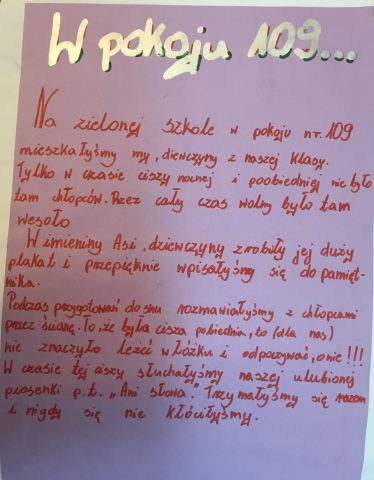 W pokoju 109...
Na zielonej szkole w pokoju nr. 109
mieszkałyśmy my, dziewczyny z naszej klasy.
Tylko w czasie ciszy nocnej i poobiedniej nie było
tam chłopców. Przez cały czas wolny było tam
wesoło
W imieniny Asi, dziewczyny zrobiły jej duży
plakat i przepięknie wpisałyśmy się do pamięt-
nika.
Podczas przygotowań do snu rozmawiałyśmy z chłopcami
przez ścianę. To, że była cisza pobiednia, to (dla nas)
nie znaczyło leżeć w łóżku i odpoczywać, o nie!!!
W czasie tej ciszy słuchałyśmy naszej ulubionej
piosenki p.t. „Ani słowa." Trzymałyśmy się razem
i nigdy się nie kłóciłyśmy.